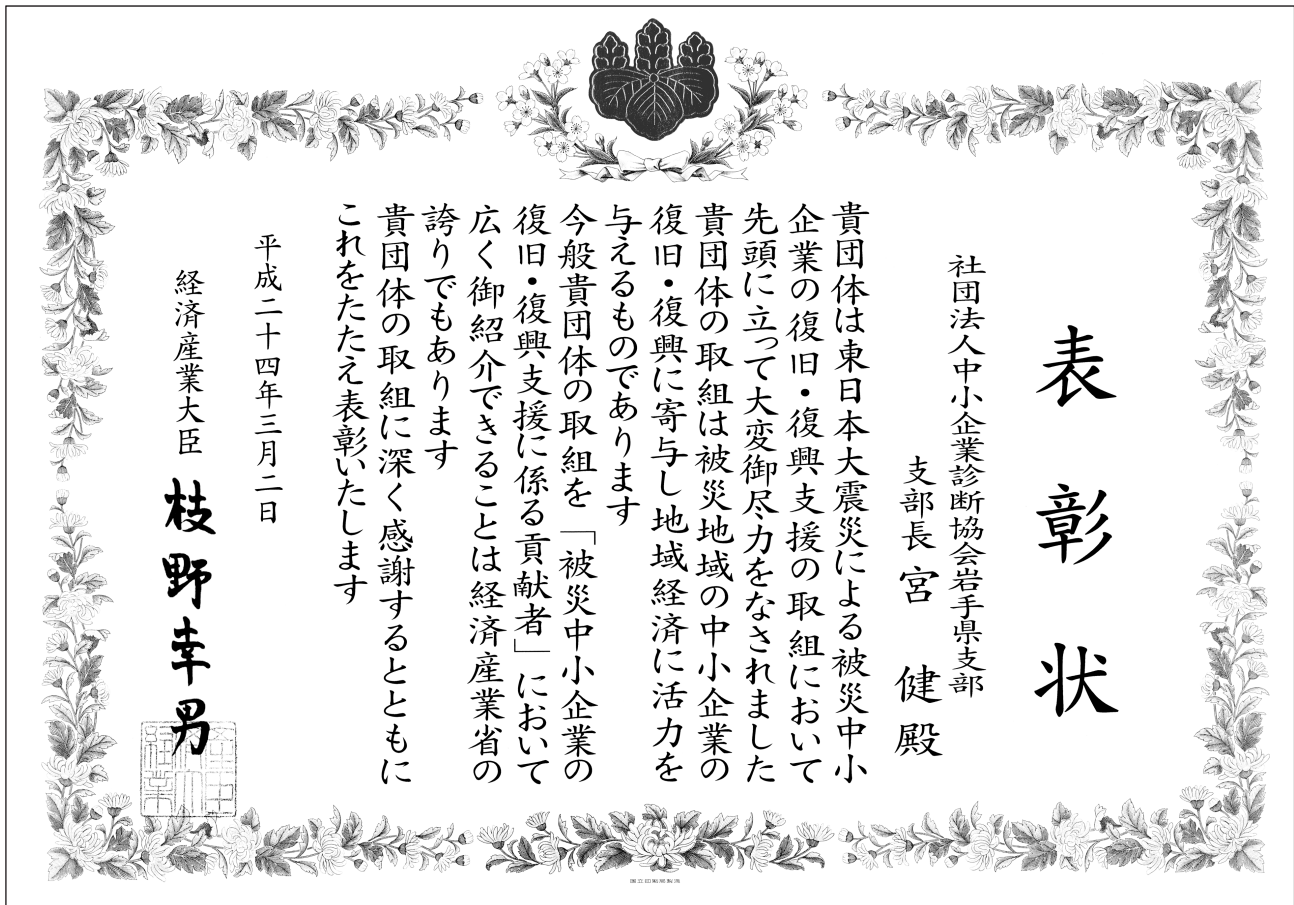 表彰状
社団法人中小企業診断協会岩手県支部
支部長宮 健殿
貴団体は東日本大震災による被災中小
企業の復旧・復興支援の取組において
先頭に立って大変御尽力をなされました
貴団体の取組は被災地域の中小企業の
復旧・復興に寄与し地域経済に活力を
与えるものであります
今般貴団体の取組を「被災中小企業の
復旧・復興支援に係る貢献者」において
広く御紹介できることは経済産業省の
誇りでもあります
貴団体の取組に深く感謝するとともに
これをたたえ表彰いたします
平成二十四年三月二日
経済産業大臣 枝野幸男